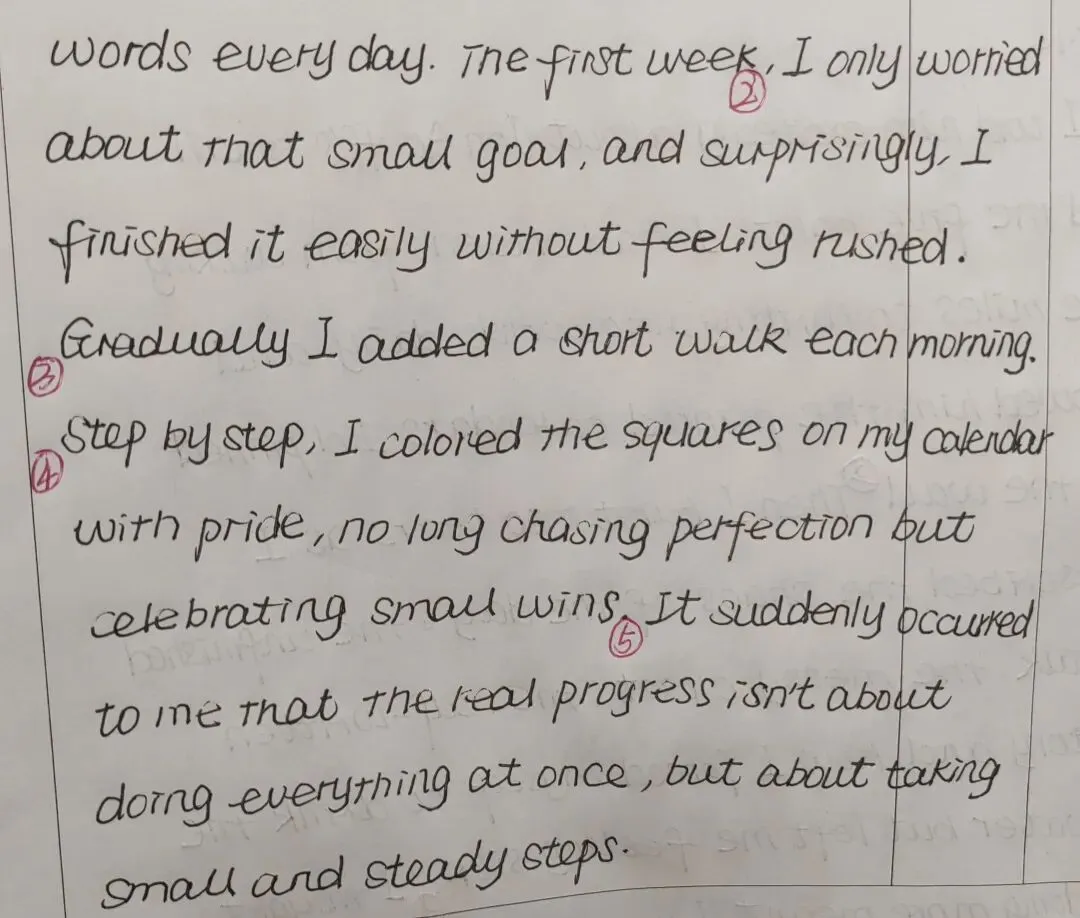 words every day. The first week, I only worried
②
about that small goal, and surprisingly, I
finished it easily without feeling rushed.
Gradually I added a short walk each morning.
③
Step by step, I colored the squares on my calendar
④
with pride, no long chasing perfection but
celebrating small wins. It suddenly occurred
⑤
to me that the real progress isn't about
doing everything at once, but about taking
small and steady steps.